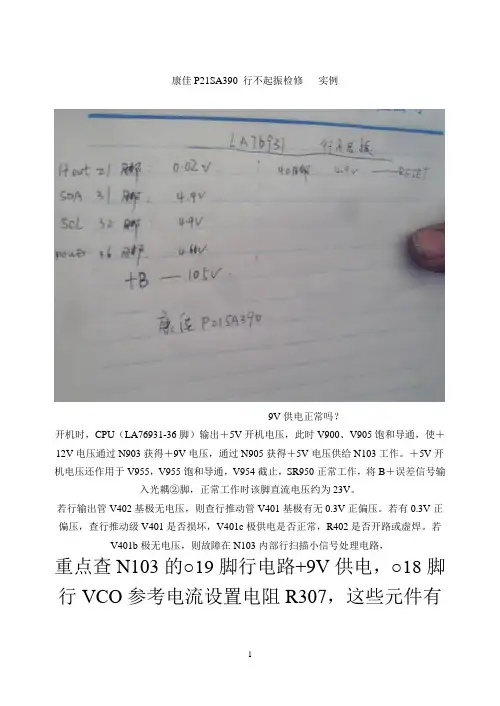 康佳 P21SA390 行不起振检修 实例
LA76931 行不起振
Hout 21脚 0.02V 40脚 4.9V —— RESET
SDA 31脚 4.9V
SCL 32脚 4.9V
power 36脚
+B — 105V
康佳 P21SA390
9V 供电正常吗？
开机时，CPU（LA76931-36 脚）输出＋5V 开机电压，此时 V900、V905 饱和导通，使＋
12V 电压通过 N903 获得＋9V 电压，通过 N905 获得＋5V 电压供给 N103 工作。＋5V 开
机电压还作用于 V955，V955 饱和导通，V954 截止，SR950 正常工作，将 B＋误差信号输
入光耦②脚，正常工作时该脚直流电压约为 23V。
若行输出管 V402 基极无电压，则查行推动管 V401 基极有无 0.3V 正偏压。若有 0.3V 正
偏压，查行推动级 V401 是否损坏，V401c 极供电是否正常，R402 是否开路或虚焊。若
V401b 极无电压，则故障在 N103 内部行扫描小信号处理电路，
重点查 N103 的○19 脚行电路+9V 供电，○18 脚
行 VCO 参考电流设置电阻 R307，这些元件有
1